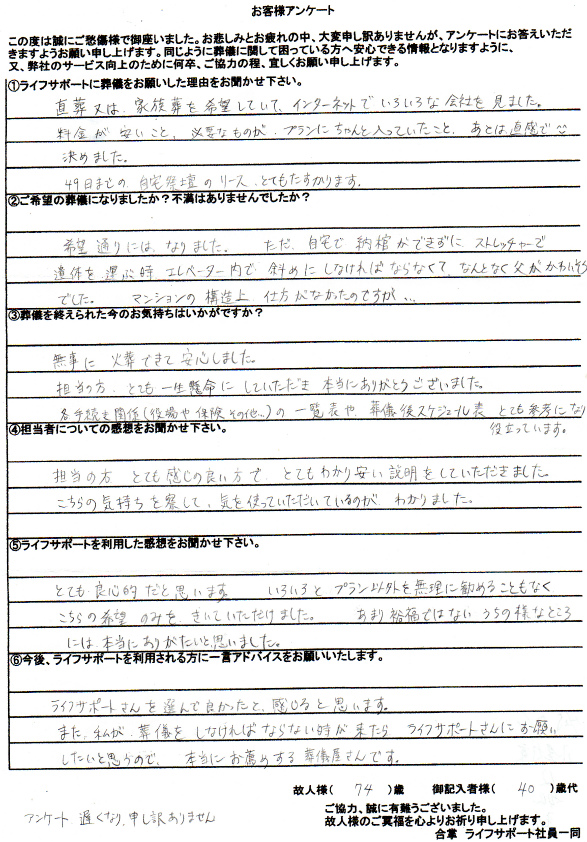 お客様アンケート
この度は誠にご愁傷様で御座いました。お悲しみとお疲れの中、大変申し訳ありませんが、アンケートにお答えいただ
きますようお願い申し上げます。同じように葬儀に関して困っている方へ安心できる情報となりますように、
又、弊社のサービス向上のために何卒、ご協力の程、宜しくお願い申し上げます。
①ライフサポートに葬儀をお願いした理由をお聞かせ下さい。
直葬又は、家族葬を希望していて、インターネットでいろいろな会社を見ました。
料金が安いこと、必要なものが、プランにちゃんと入っていたこと、あとは直感で
決めました。
49日までの、自宅祭壇のリース、とてもたすかります。
②ご希望の葬儀になりましたか？不満はありませんでしたか？
希望通りには、なりました。 ただ、自宅で納棺ができずに ストレッチャーで
遺体を運ぶ時 エレベーター内で斜めにしなければならなくて、なんとなく父がかわいそう
でした。 マンションの構造上、仕方がなかったのですが…
③葬儀を終えられた今のお気持ちはいかがですか？
無事に 火葬できて安心しました。
担当の方、とても一生懸命にしていただき 本当にありがとうございました。
各手続き関係(役場や保険、その他…)の一覧表や、葬儀後スケジュール表 とても参考になり
役立っています。
④担当者についての感想をお聞かせ下さい。
担当の方 とても感じの良い方で、とてもわかり安い説明をしていただきました。
こちらの気持ちを察して、気を使っていただいているのが、わかりました。
⑤ライフサポートを利用した感想をお聞かせ下さい。
とても良心的だと思います。 いろいろと プラン以外を無理に勧めることもなく
こちらの希望のみを、きいていただけました。 あまり裕福ではない うちの様なところ
には本当にありがたいと思いました。
⑥今後、ライフサポートを利用される方に一言アドバイスをお願いいたします。
ライフサポートさんを選んで良かったと、感じると思います。
また、私が、葬儀をしなければならない時が来たら ライフサポートさんにお願い
したいと思うので、本当にお薦めする葬儀屋さんです。
故人様( 74 )歳 御記入者様( 40 )歳代
アンケート 遅くなり、申し訳ありません
ご協力、誠に有難うございました。
故人様のご冥福を心よりお祈り申し上げます。
合掌 ライフサポート社員一同